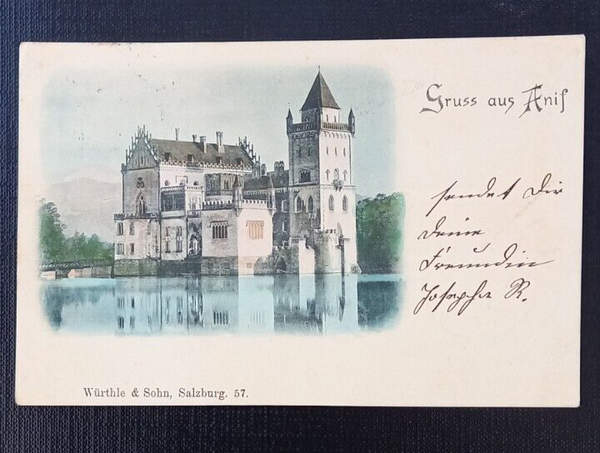 Gruss aus Anif
sendet Dir
Deine
Freundin
Josepha R.
Würthle & Sohn, Salzburg. 57.